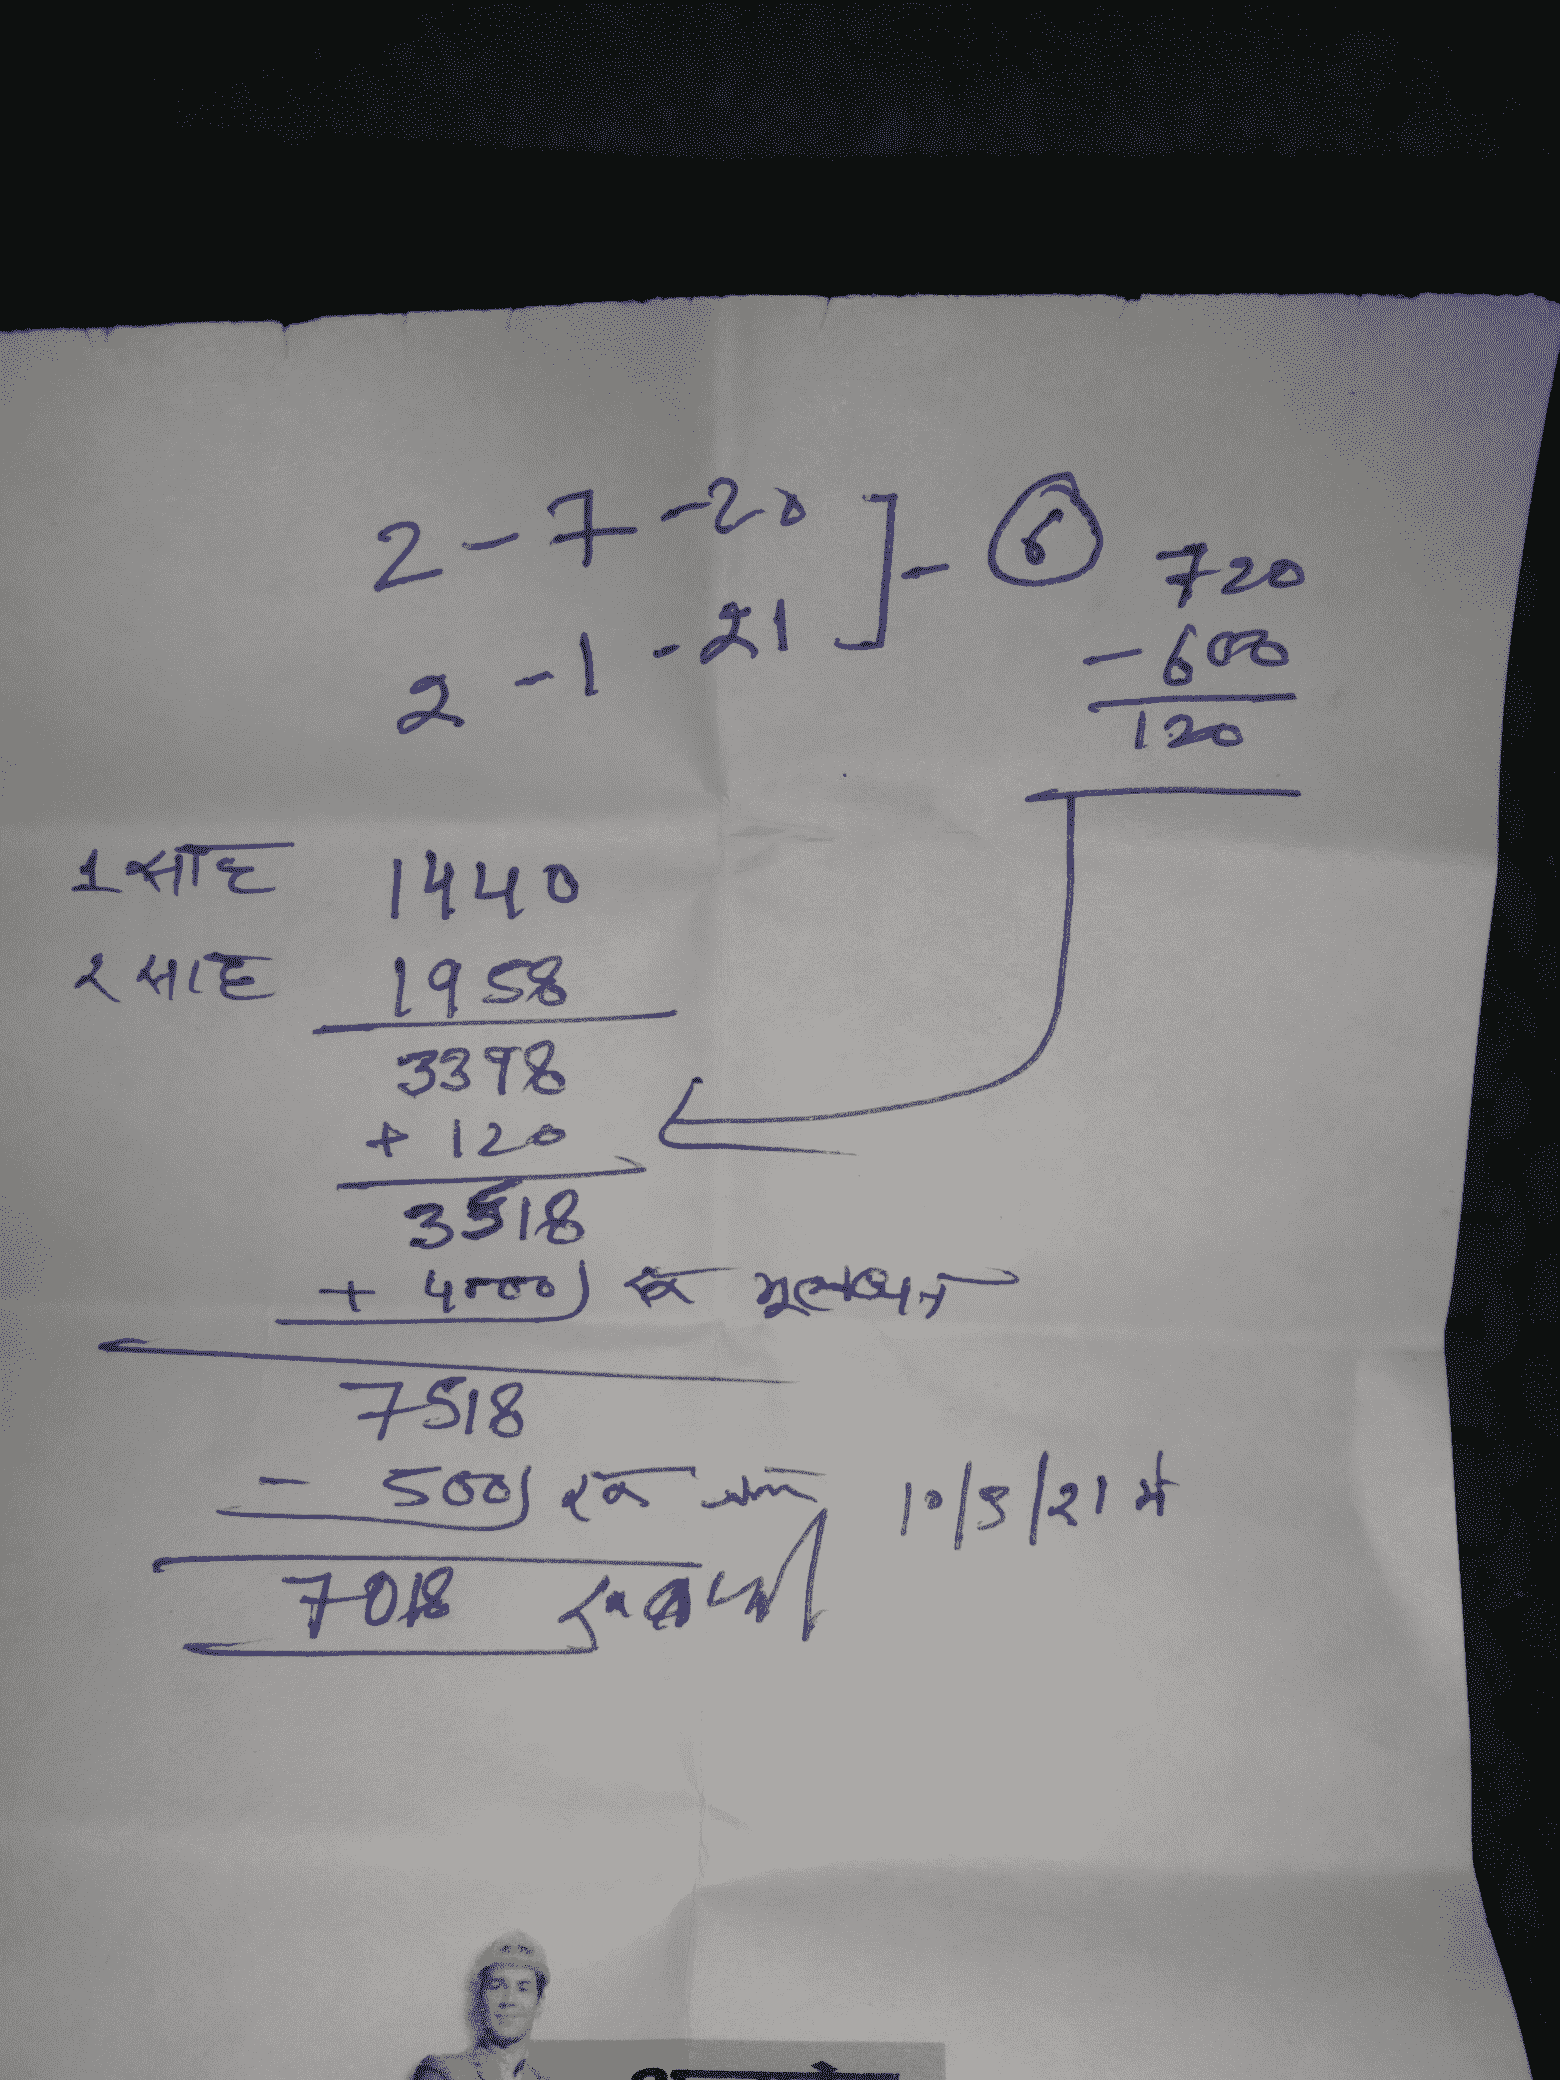 2 - 7 - 20 ] - 6
2 - 1 - 21
720
- 600
120
1 साह 1440
२ साह 1958
3398
+ 120
3518
+ 4000 रू मूलधन
7518
- 500 रू 10/5/21 मे
7018